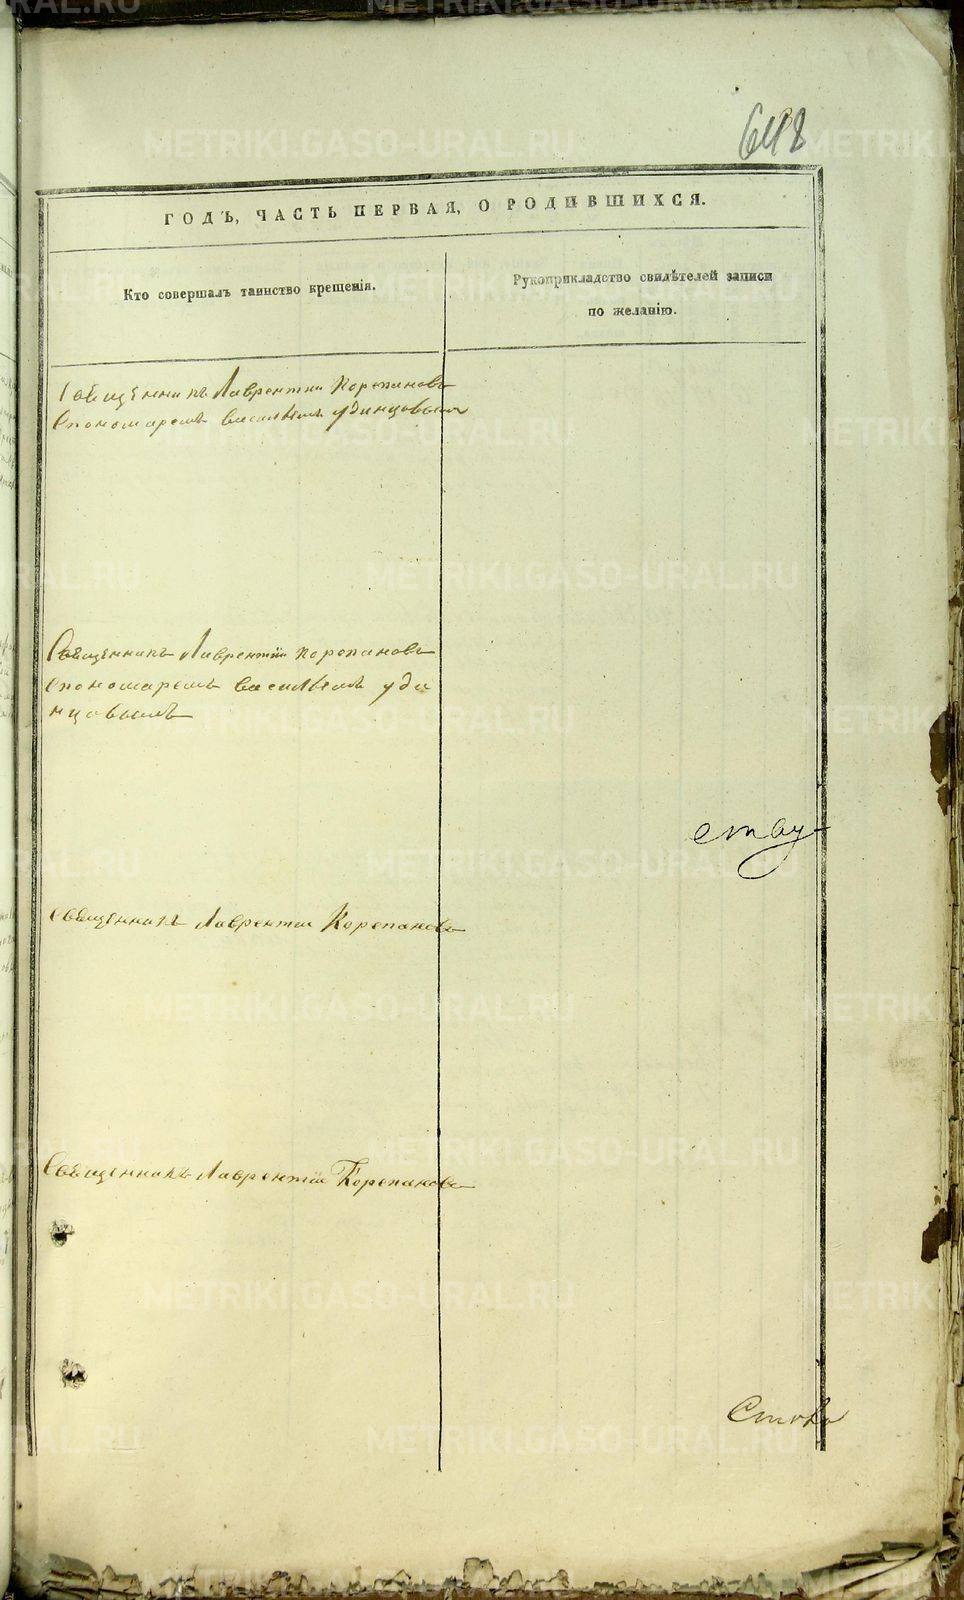 648
ГОДЪ, ЧАСТЬ ПЕРВАЯ, О РОДИВШИХСЯ.
Кто совершалъ таинство крещенія.
Рукоприкладство свидѣтелей записи
по желанію.
Священникъ Лаврентии Корепановъ
Спономаремъ васильемъ удинцовымъ
Священникъ Лаврентіи Корепановъ
спономаремъ василіемъ уди
нцовымъ
Священникъ Лаврентии Корепановъ
Священникъ Лаврентіи Корепановъ
METRIKI.GASO-URAL.RU